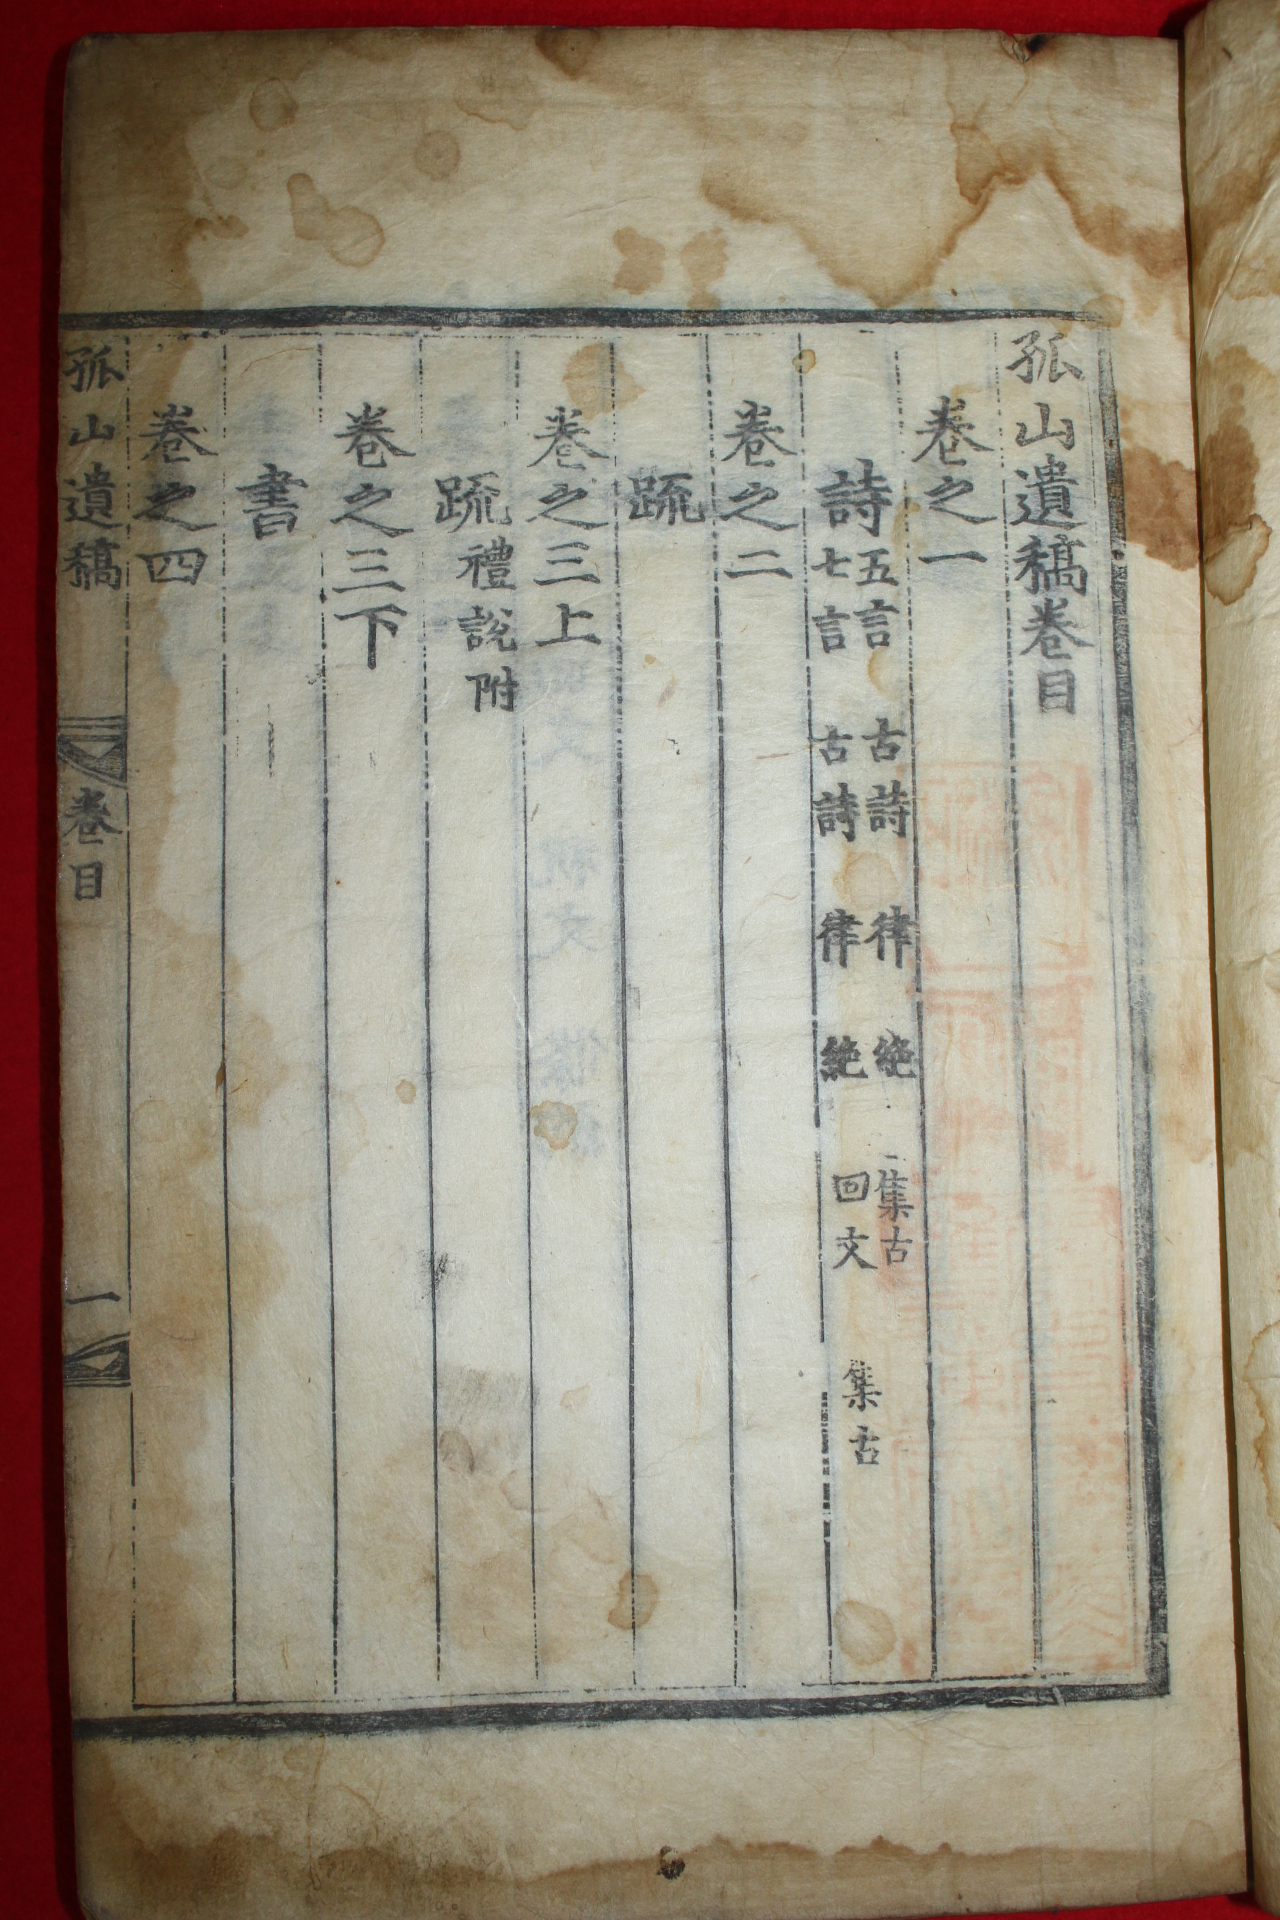 孤山遺稿卷目
卷之一
詩 五言 古詩 律 絶 集古
七言 古詩 律 絶 回文 集古
卷之二
疏
卷之三上
疏 禮說附
卷之三下
書
卷之四
孤山遺稿 卷目 一